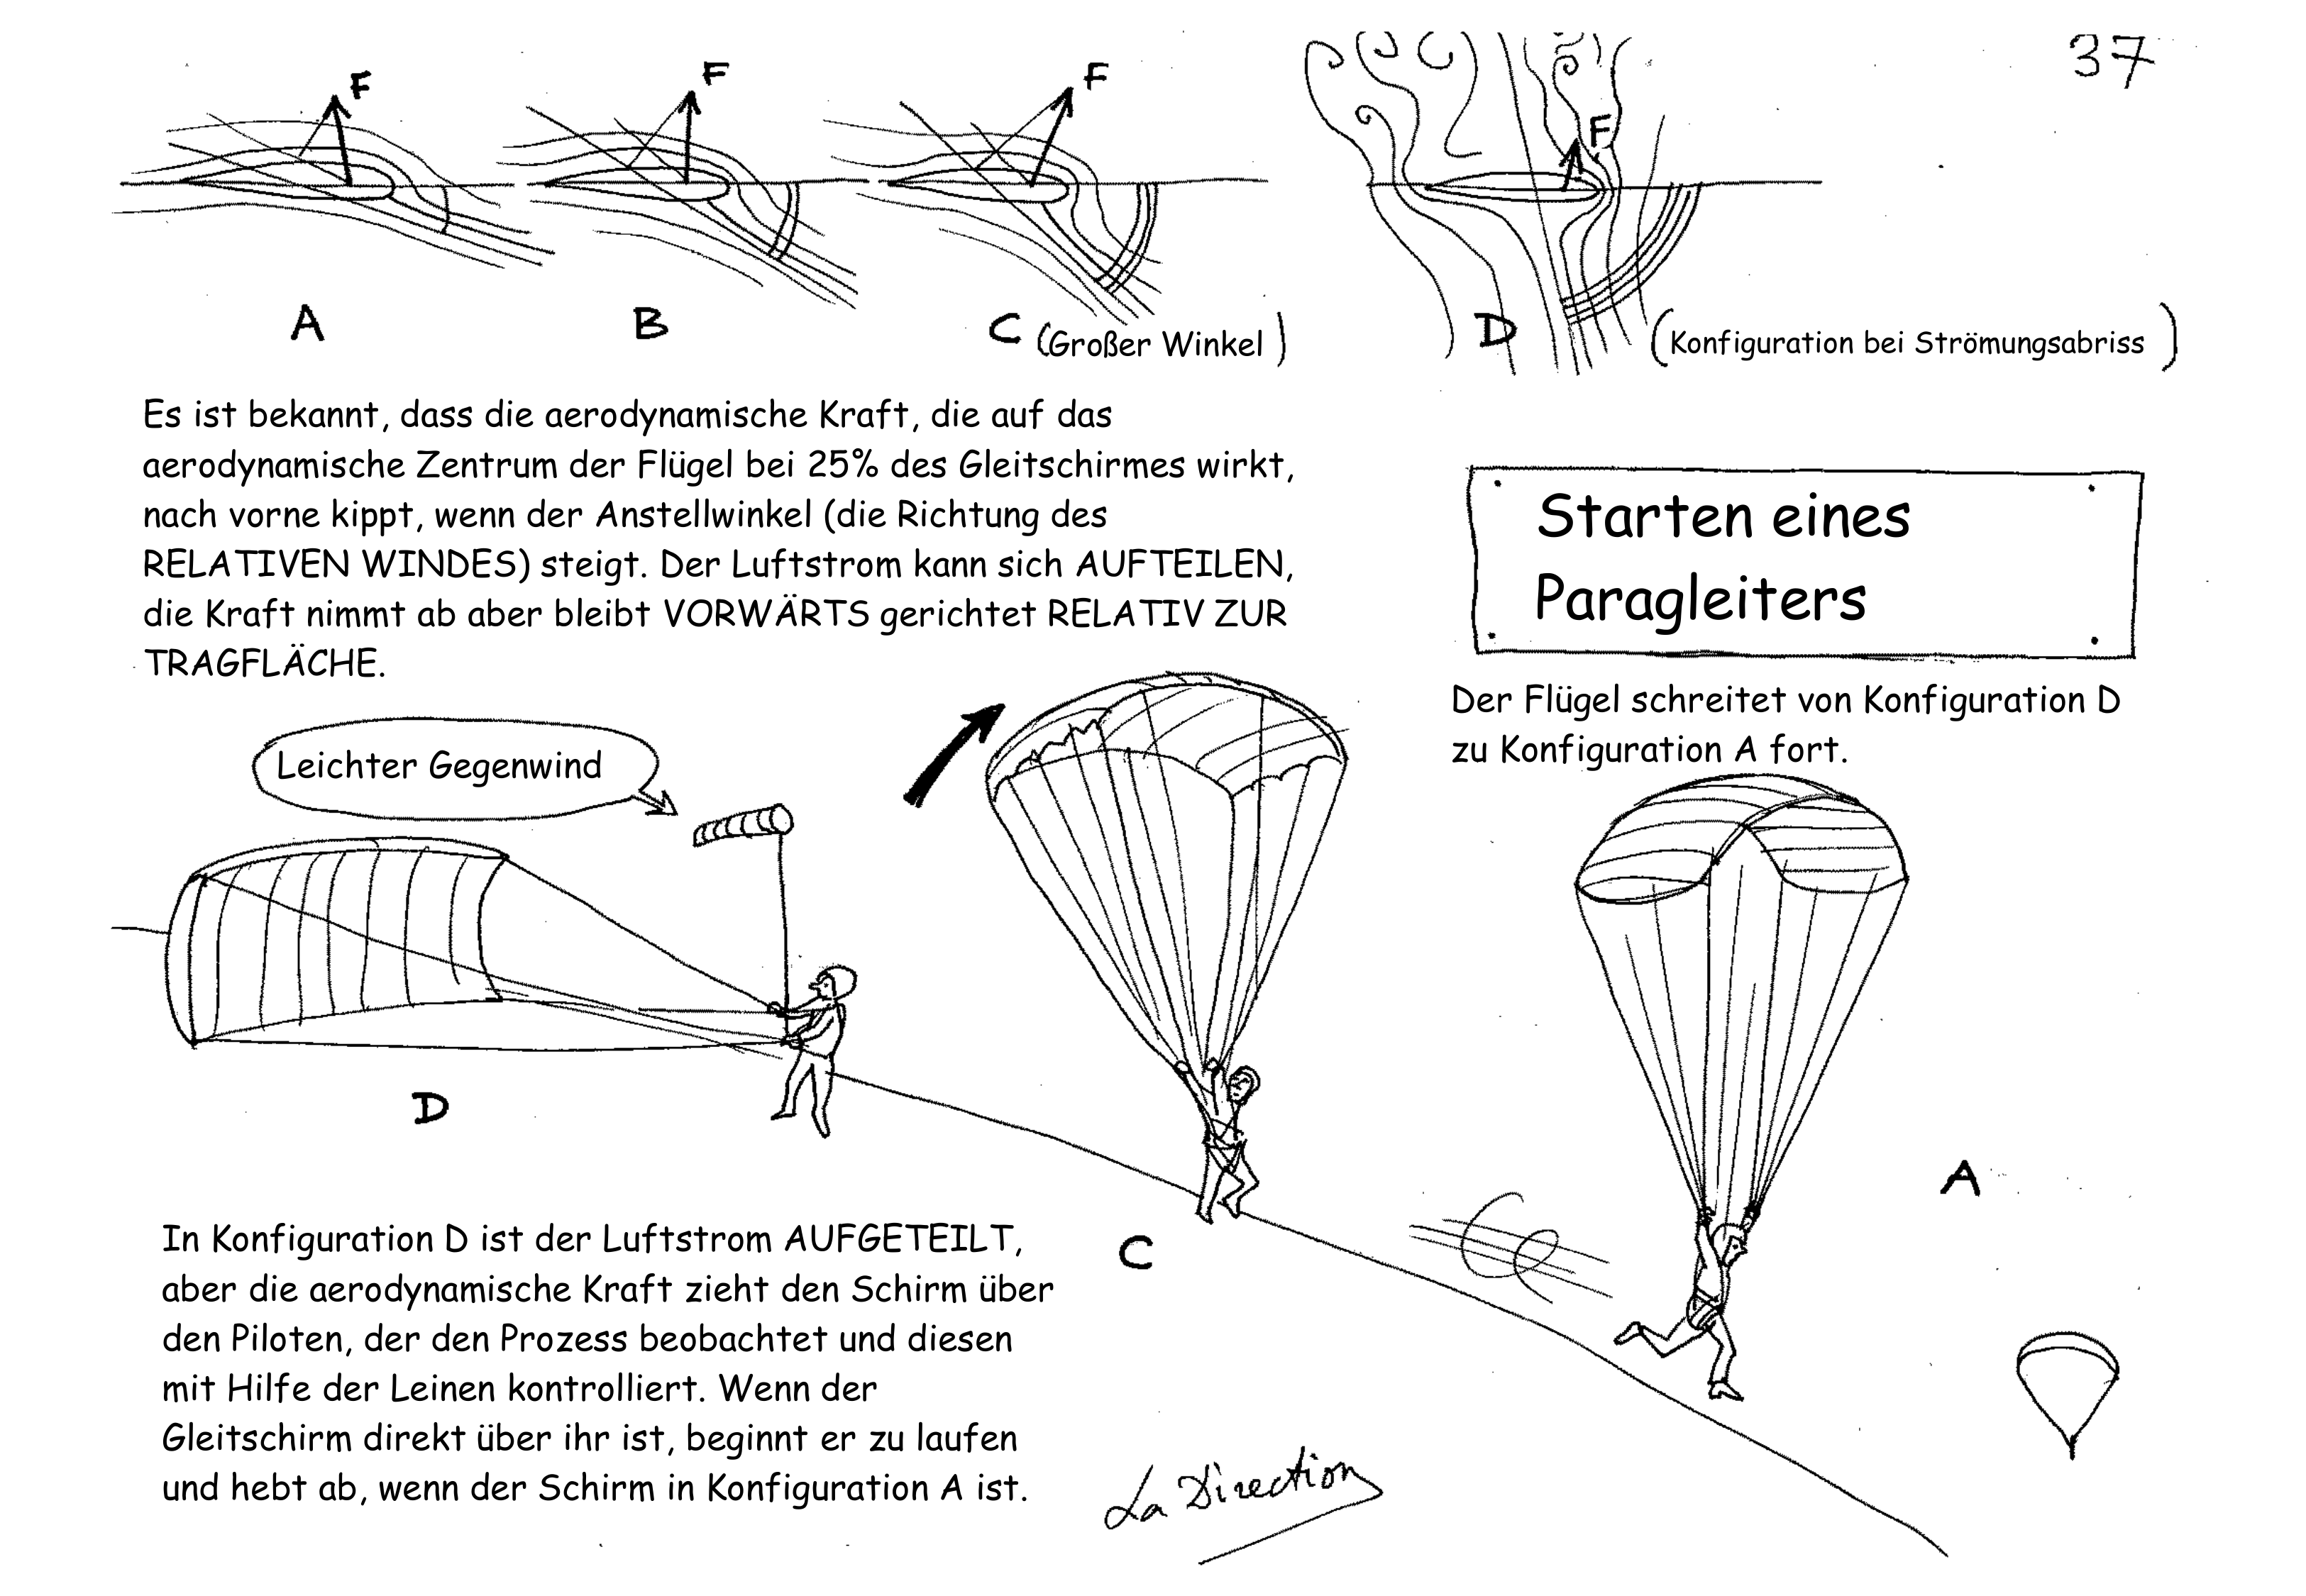 37
F
F
F
F
A
B
C (Großer Winkel)
D (Konfiguration bei Strömungsabriss)
Es ist bekannt, dass die aerodynamische Kraft, die auf das
aerodynamische Zentrum der Flügel bei 25% des Gleitschirmes wirkt,
nach vorne kippt, wenn der Anstellwinkel (die Richtung des
RELATIVEN WINDES) steigt. Der Luftstrom kann sich AUFTEILEN,
die Kraft nimmt ab aber bleibt VORWÄRTS gerichtet RELATIV ZUR
TRAGFLÄCHE.
Starten eines
Paragleiters
Der Flügel schreitet von Konfiguration D
zu Konfiguration A fort.
Leichter Gegenwind
D
C
A
In Konfiguration D ist der Luftstrom AUFGETEILT,
aber die aerodynamische Kraft zieht den Schirm über
den Piloten, der den Prozess beobachtet und diesen
mit Hilfe der Leinen kontrolliert. Wenn der
Gleitschirm direkt über ihr ist, beginnt er zu laufen
und hebt ab, wenn der Schirm in Konfiguration A ist.
La Direction